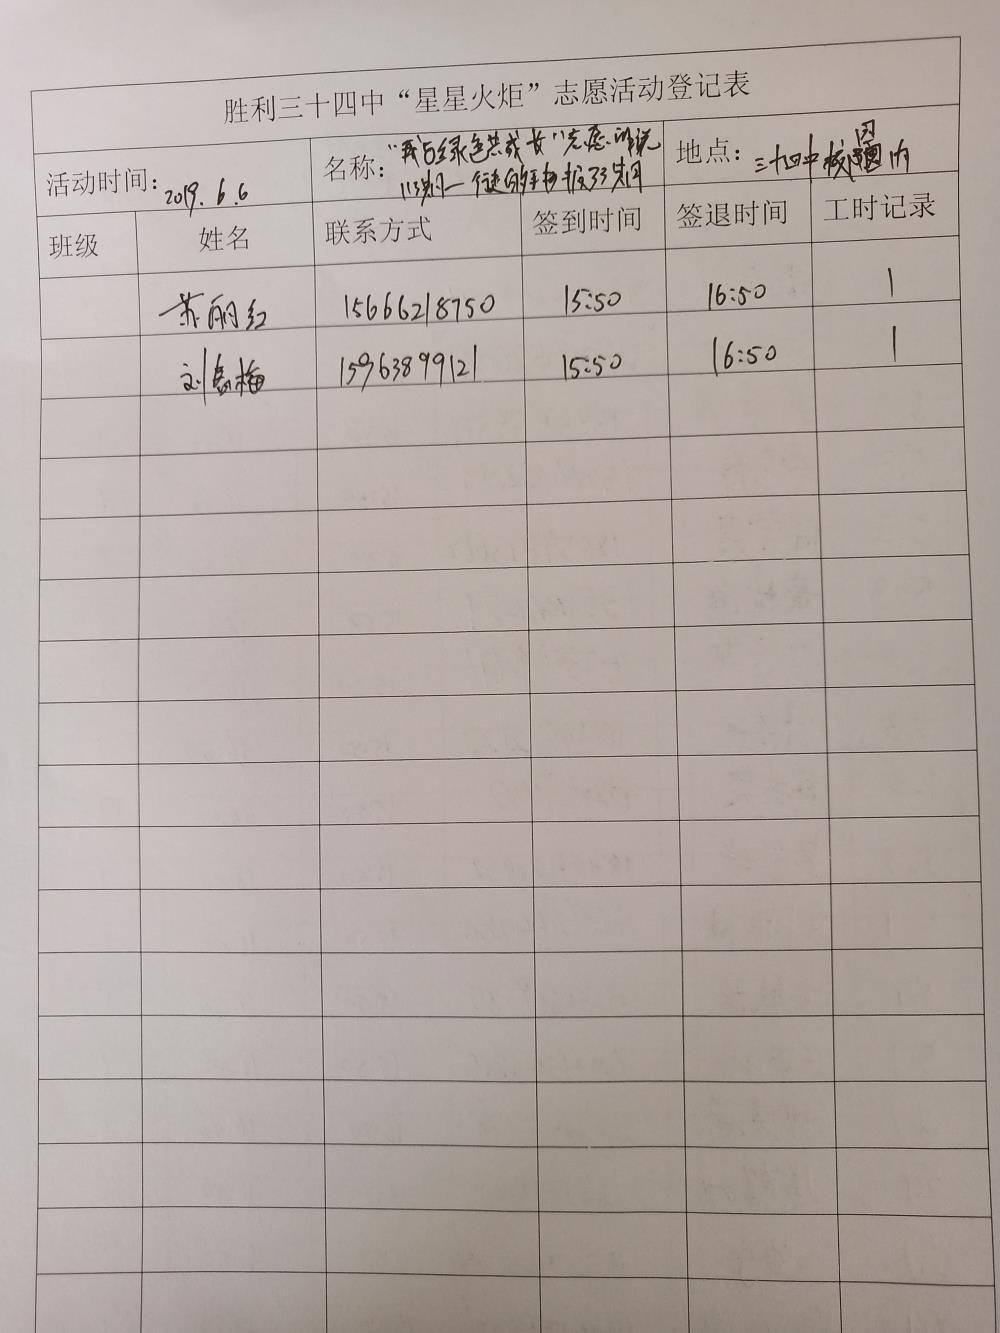 胜利三十四中“星星火炬”志愿活动登记表
活动时间：2019.6.6 名称：“我与绿色共成长”志愿 地点：三十四中校园内
班级 姓名 联系方式 签到时间 签退时间 工时记录
苏丽红 15666218750 15:50 16:50 1
刘 梅 15963899121 15:50 16:50 1